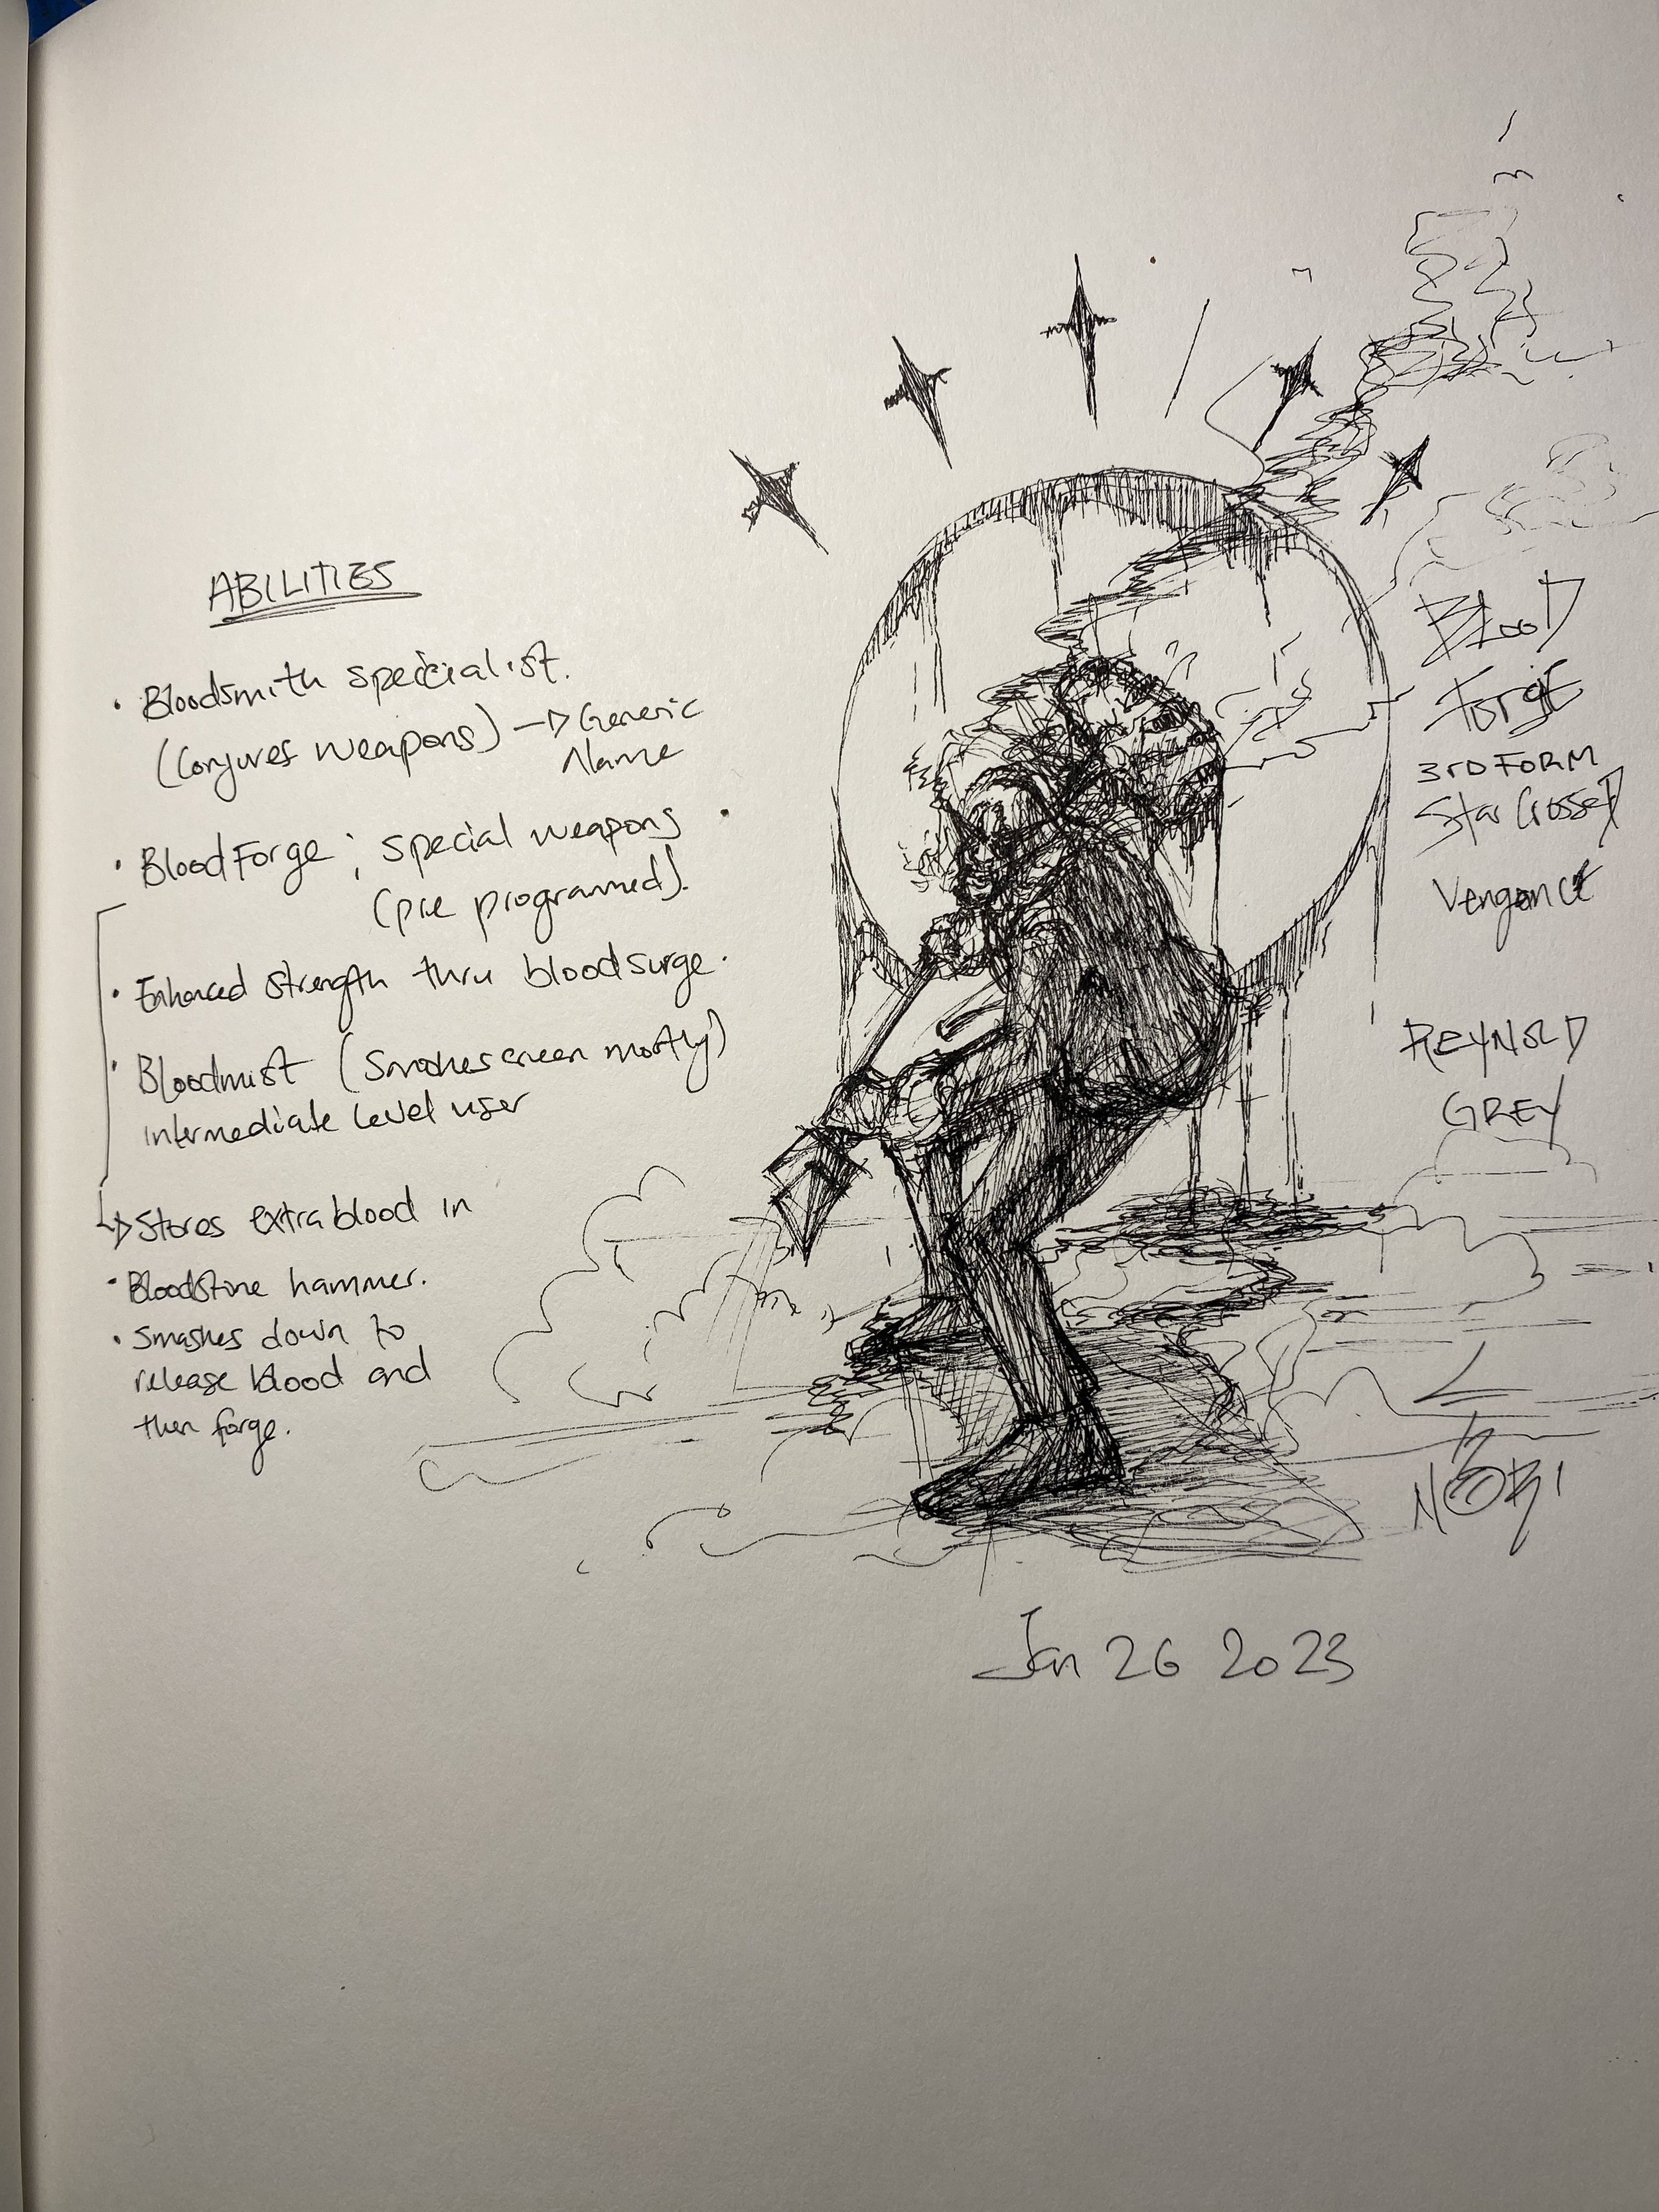 ABILITIES
• Bloodsmith specialist.
(Conjures weapons) → Generic
Name
• BloodForge ; special weapons
(pre programmed).
• Enhanced strength thru bloodsurge.
• Bloodmist (Smokescreen mostly)
intermediate level user
→ Stores extra blood in
• Bloodstone hammer.
• Smashes down to
release blood and
then forge.
BLooD
ForgE
3rD FORM
Star CrosseD
VengancE
REYNOLD
GREY
Jan 26 2023